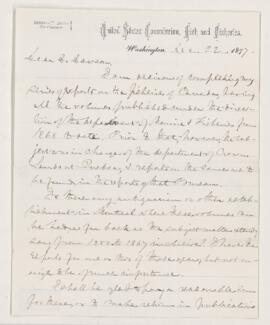 United States Commission, Fish and Fisheries.
Washington, Dec. 22, 1877
Dear Dr. Dawson
I am desirous of completing my
series of reports on the fisheries of Canada, having
all the volumes published under the direc-
tion of the department of Marine & Fisheries from
1868 to date. Prior to that, however, the sub-
ject was in charge of the department of Crown
Lands at Quebec, & reports on the same are to
be found in the reports of that
Is there any antiquarian or other estab-
lishment in Montreal where these volumes can
be had as far back as the subject matter extends,
say from to 1867 inclusive? I have the
reports for one or two of these years, but not en-
ough to be of much importance.
I shall be glad to pay a reasonable sum
for these, or to make returns in publications